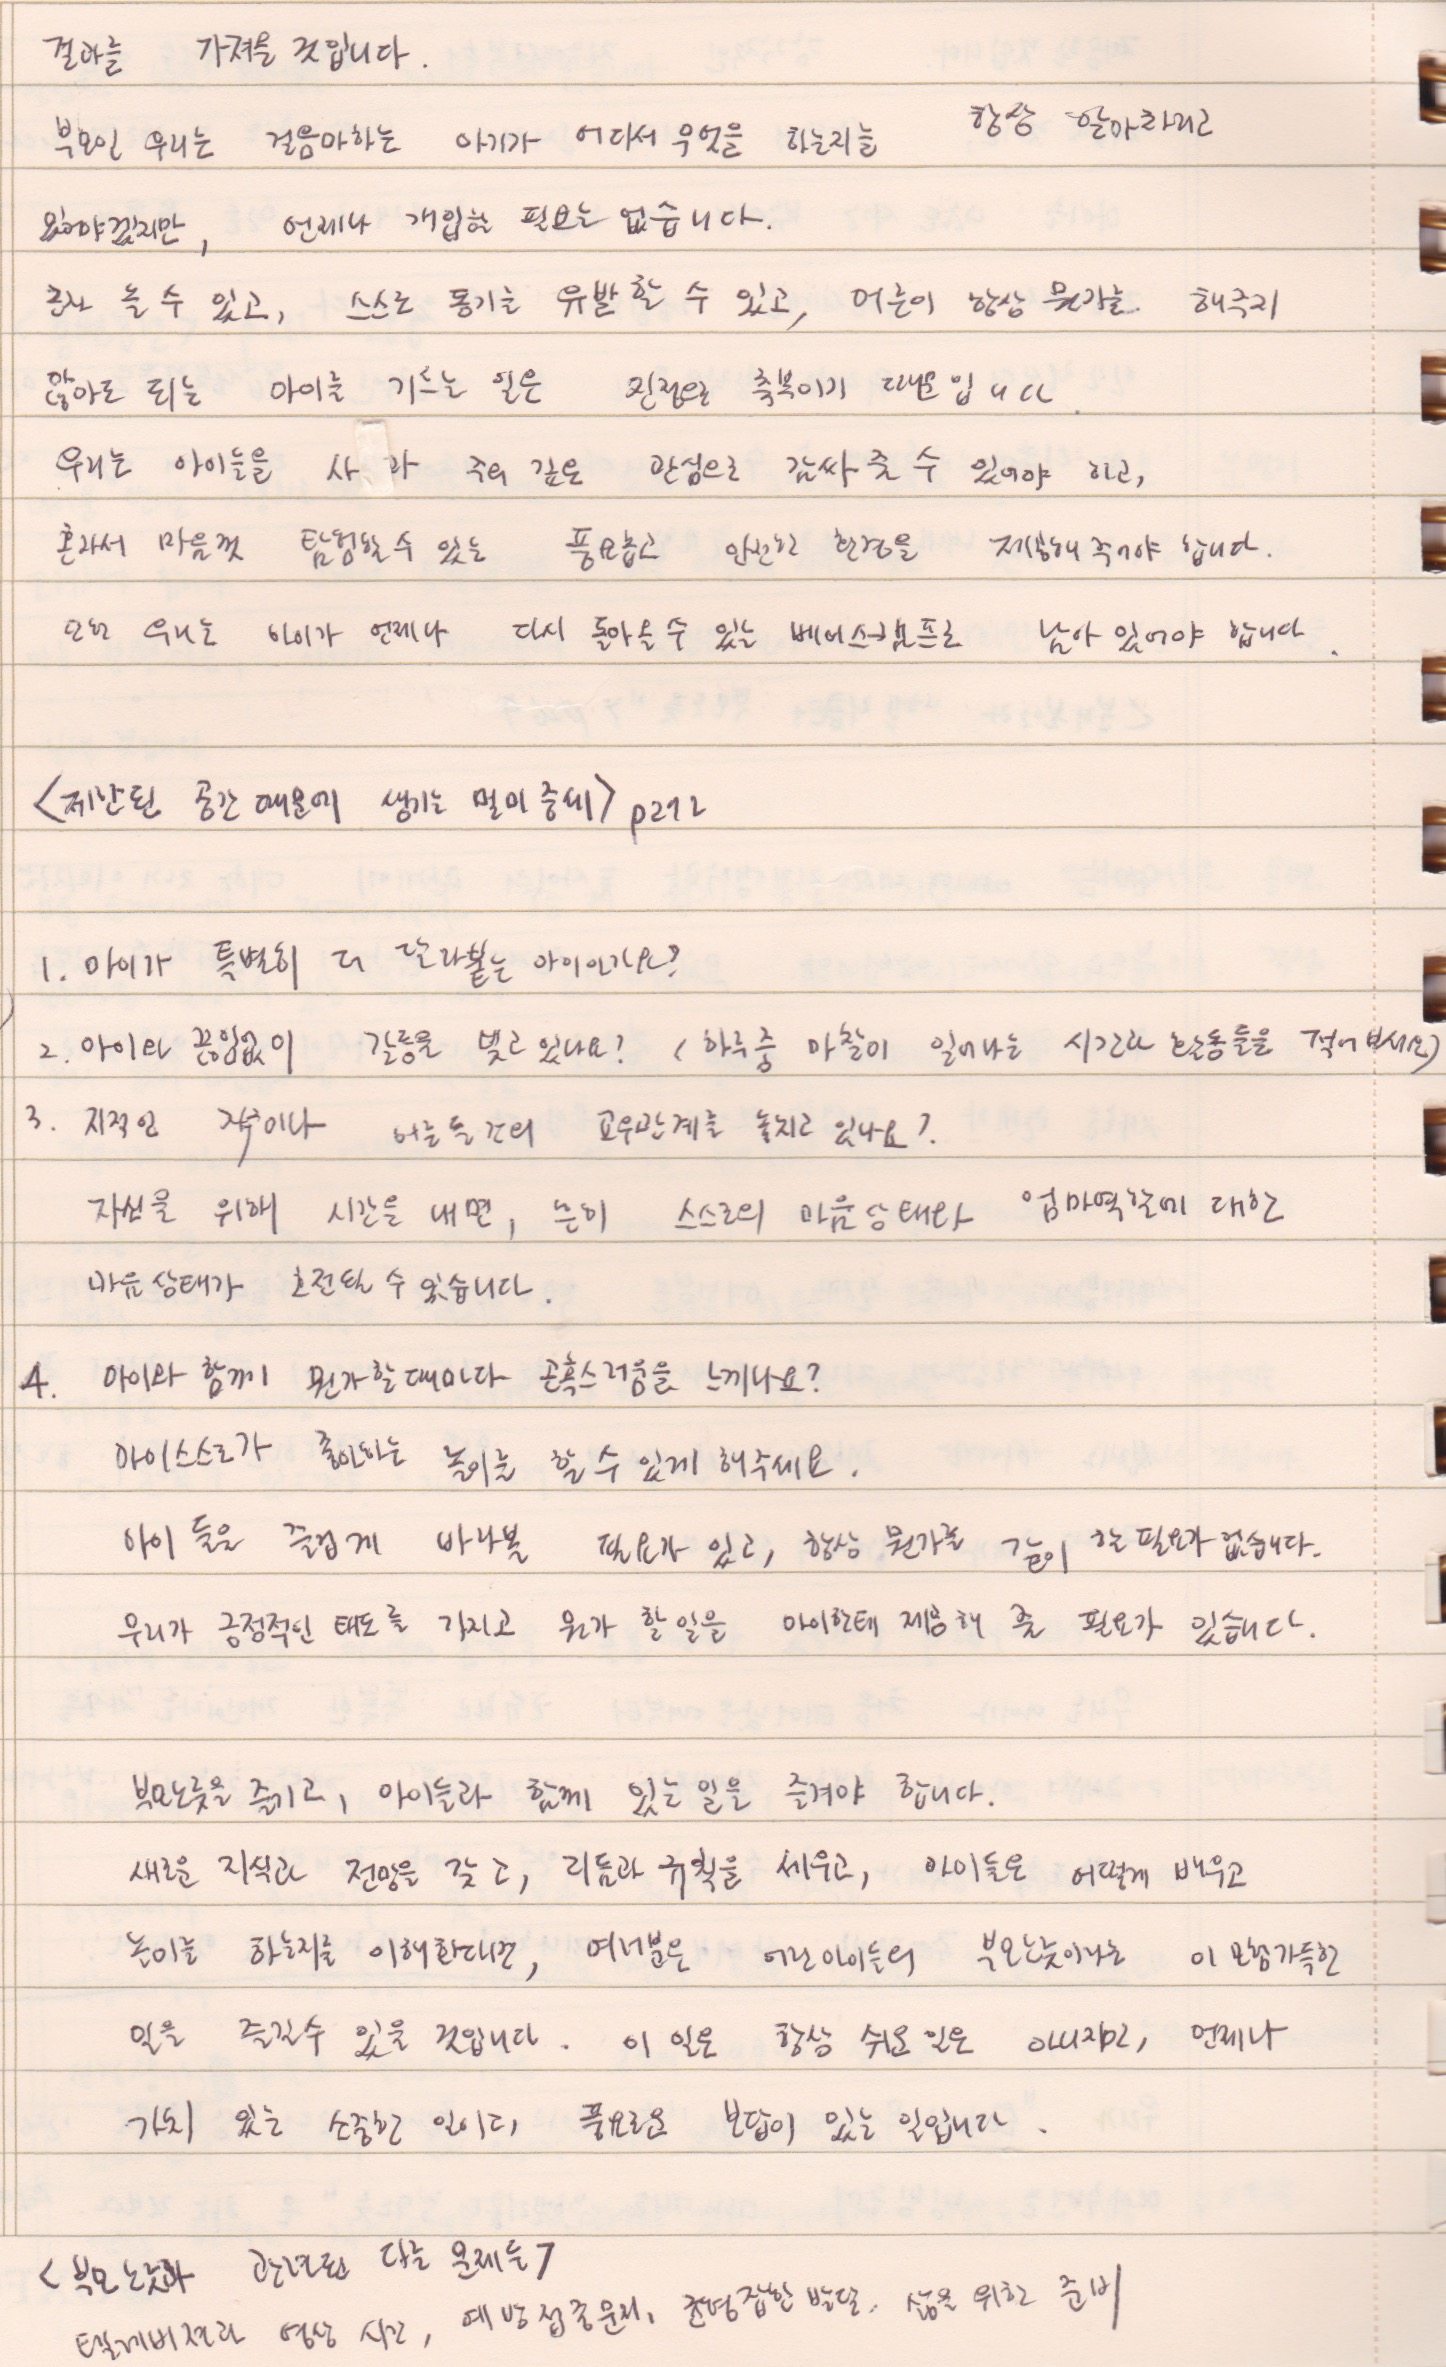 결과를 가져올 것입니다.
부모인 우리는 걸음마하는 아기가 어디서 무엇을 하는지를 항상 알아차리고
있어야겠지만, 언제나 개입할 필요는 없습니다.
혼자 놀 수 있고, 스스로 동기를 유발할 수 있고, 어른이 항상 뭔가를 해주지
않아도 되는 아이를 기르는 일은 진정으로 축복이기 때문입니다.
우리는 아이들을 주의 깊은 관심으로 감싸 줄 수 있어야 하고,
혼자서 마음껏 탐험할 수 있는 풍요롭고 안전한 환경을 제공해 주어야 합니다.
또한 우리는 아이가 언제나 다시 돌아올 수 있는 베이스캠프로 남아 있어야 합니다.
<제한된 공간 때문에 생기는 멀미 증세> p292
1. 아이가 특별히 더 달라붙는 아이인가요?
2. 아이와 끊임없이 갈등을 빚고 있나요? (하루중 마찰이 일어나는 시간과 활동들을 적어보세요)
3. 지적인 자극이나 어른들간의 교우관계를 놓치고 있나요?
자신을 위해 시간을 내면, 흔히 스스로의 마음상태와 엄마역할에 대한
마음상태가 호전될 수 있습니다.
4. 아이와 함께 뭔가 할 때마다 곤혹스러움을 느끼나요?
아이스스로가 좋아하는 놀이를 할 수 있게 해주세요.
아이들을 즐겁게 바라볼 필요가 있고, 항상 뭔가를 같이 할 필요가 없습니다.
우리가 긍정적인 태도를 가지고 뭔가 할 일을 아이한테 제공해 줄 필요가 있습니다.
부모노릇을 즐기고, 아이들과 함께 있는 일을 즐겨야 합니다.
새로운 지식과 전망을 갖고, 리듬과 규칙을 세우고, 아이들은 어떻게 배우고
놀이를 하는지를 이해한다면, 여러분은 어린아이들의 부모노릇이라는 이 모험가득한
일을 즐길수 있을 것입니다. 이 일은 항상 쉬운 일은 아니지만, 언제나
가치 있는 소중한 일이며, 풍요로운 보답이 있는 일입니다.
<부모노릇과 관련된 다른 문제들>
텔레비전과 영상 시간, 예방접종문제, 균형잡힌 발달, 삶을 위한 준비